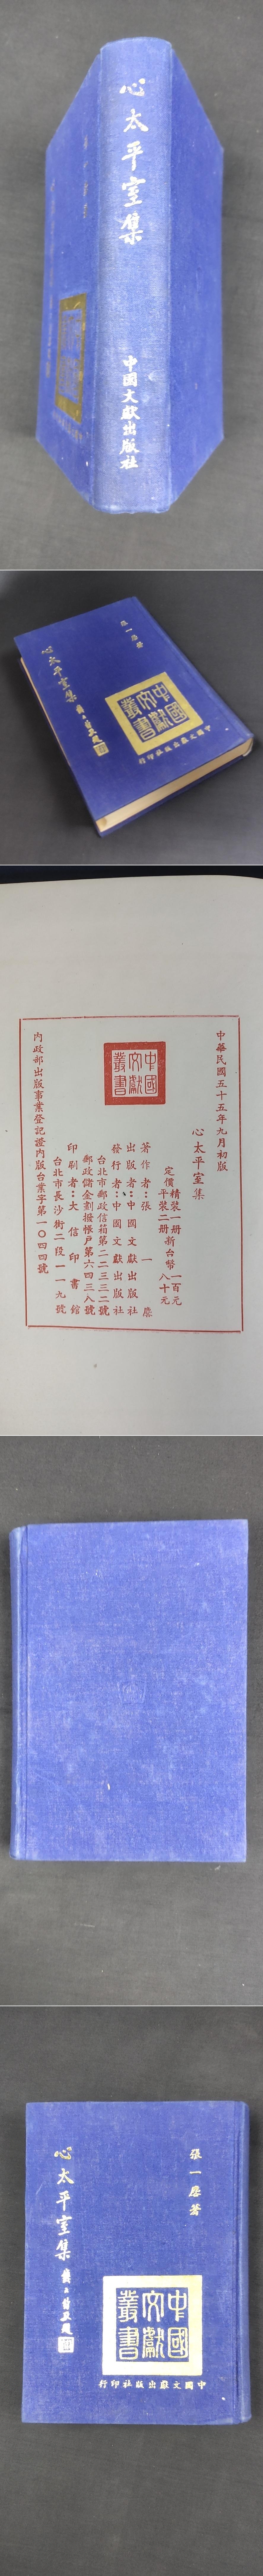 心太平室集
中国文獻出版社
張一麐著
心太平室集
中國文獻叢書
中國文獻出版社印行
中華民國五十五年九月初版
心太平室集
精裝一册新台幣一百元
定價
平裝二册 八十元
中國文獻叢書
著作者：張一麐
出版者：中國文獻出版社
發行者：中國文獻出版社
台北市郵政信箱第二二三二號
郵政儲金劃撥帳戶第六四三八號
印刷者：大信印書館
台北市長沙街二段一一九號
內政部出版事業登記證內版台業字第一〇四四號
張一麐著
心太平室集
中國文獻叢書
中國文獻出版社印行